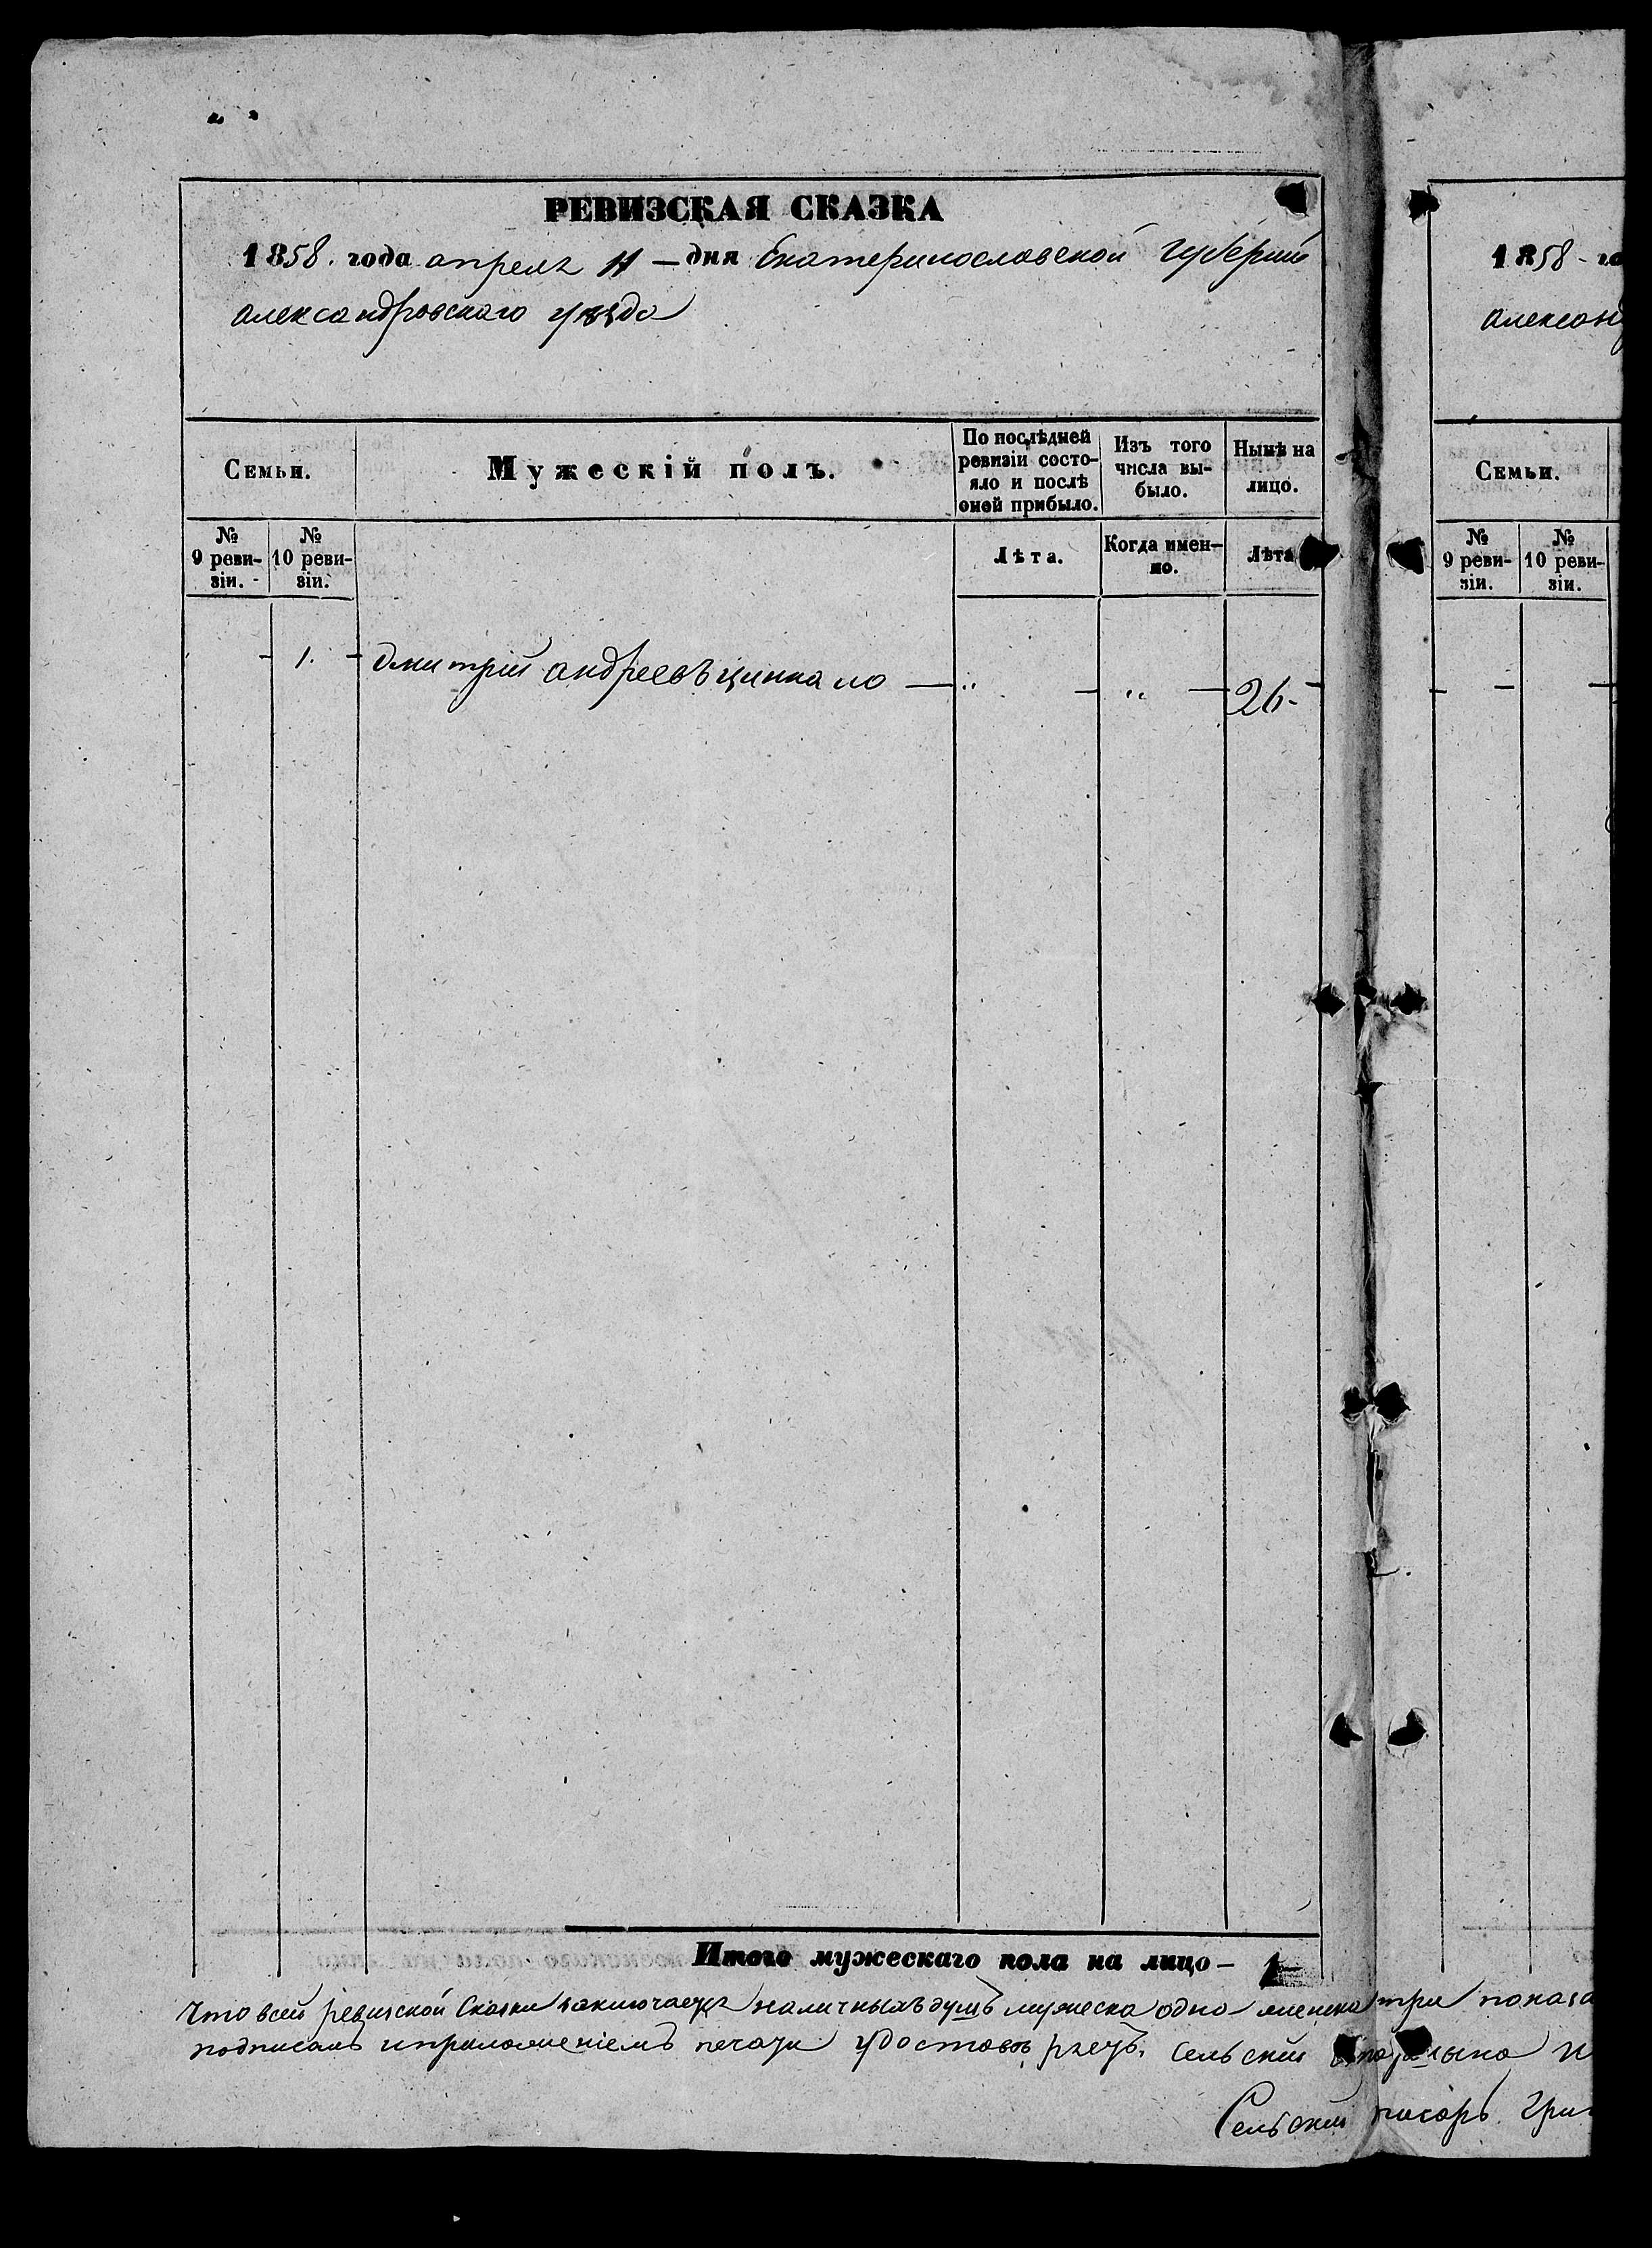 РЕВИЗСКАЯ СКАЗКА
1858. года апреля 11 – дня Екатеринославской Губернии
Александровскаго уезда
Семьи.
Мужескій полъ.
По послѣдней ревизіи состо-
яло и послѣ
оной прибыло.
Изъ того
числа вы-
было.
Нынѣ на
лицо.
№
9 реви-
зіи.
№
10 реви-
зіи.
Лѣта.
Когда имен-
но.
Лѣта
1. Дмитрій андреевъ 26
Итого мужескаго пола на лицо – 1
Что всей ревизской Сказки заключается наличныхъ душъ мужеска одно женска три показа
подписомъ и приложеніемъ печати удостоверяетъ. Сельскій
Сельскій писарь Гри
1858 – го
Алексан
Семьи.
№
9 реви-
зіи.
№
10 реви-
зіи.